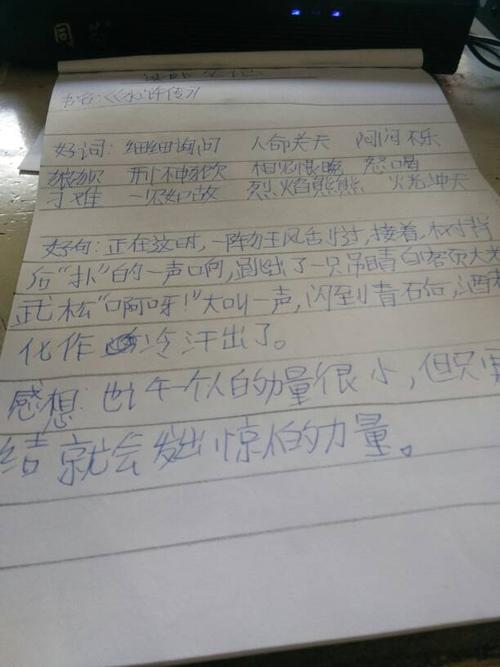 书名:《水浒传》
好词:细细询问 人命关天 闷闷不乐
狼狈 相见恨晚 怒喝
才难 一见如故 烈焰熊熊 火光冲天
好句:正在这时,一阵狂风刮过,接着,树背
后“扑”的一声响,跳出了一只吊睛白额大
武松“啊呀!”大叫一声,闪到青石后,酒
化作冷汗出了。
感想:也许一个人的力量很小,但只
结就会发出惊人的力量。